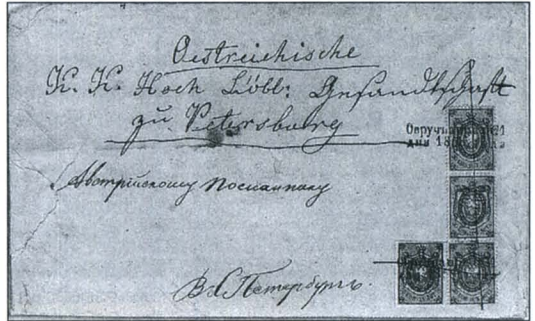 Oestreichische
K. K. Hoch Löbl: Gesandtschaft
zu Petersburg
Австрійскому Посланнику
В. С. Петербургъ.